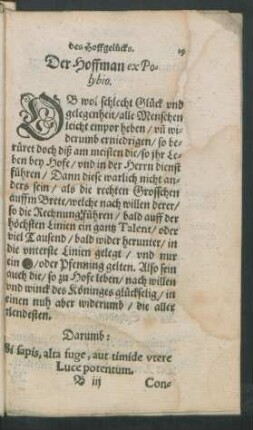 des Hoffgelücks. 19
Der Hoffman ex Po-
lybio.
OB wol schlecht Glück vnd
gelegenheit/alle Menschen
leicht empor heben / vñ wi-
derumb erniedrigen/ so be-
rüret doch diß am meisten die/so jhr Le-
ben bey Hofe/ vnd in der Herrn dienst
führen / Dann diese warlich nicht an-
ders sein/ als die rechten Grosschen
auffm Brete/welche nach willen derer/
so die Rechnung führen/ bald auff der
höchsten Linien ein gantz Talent/ oder
viel Tausend/ bald wider herunter/ in
die vnterste Linien gelegt / vnd nur
ein /oder Pfenning gelten. Also sein
auch die/ so zu Hofe leben/ nach willen
vnd winck des Köninges glückselig/ in
einen nuh aber widerumb / die aller
elendesten.
Darumb:
Si sapis, alta fuge, aut timide vtere
Luce potentum.
B iij Con-